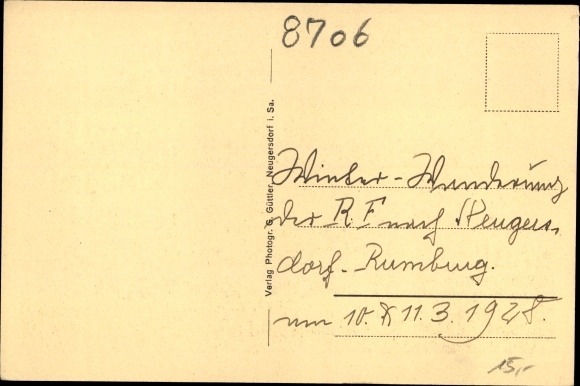 8706
Verlag Photogr. G. Güttler, Neugersdorf i. Sa.
Winter-Wanderung
der R.F nach Neugers-
dorf-Rumburg.
am 10. & 11.3.1928.
15,-